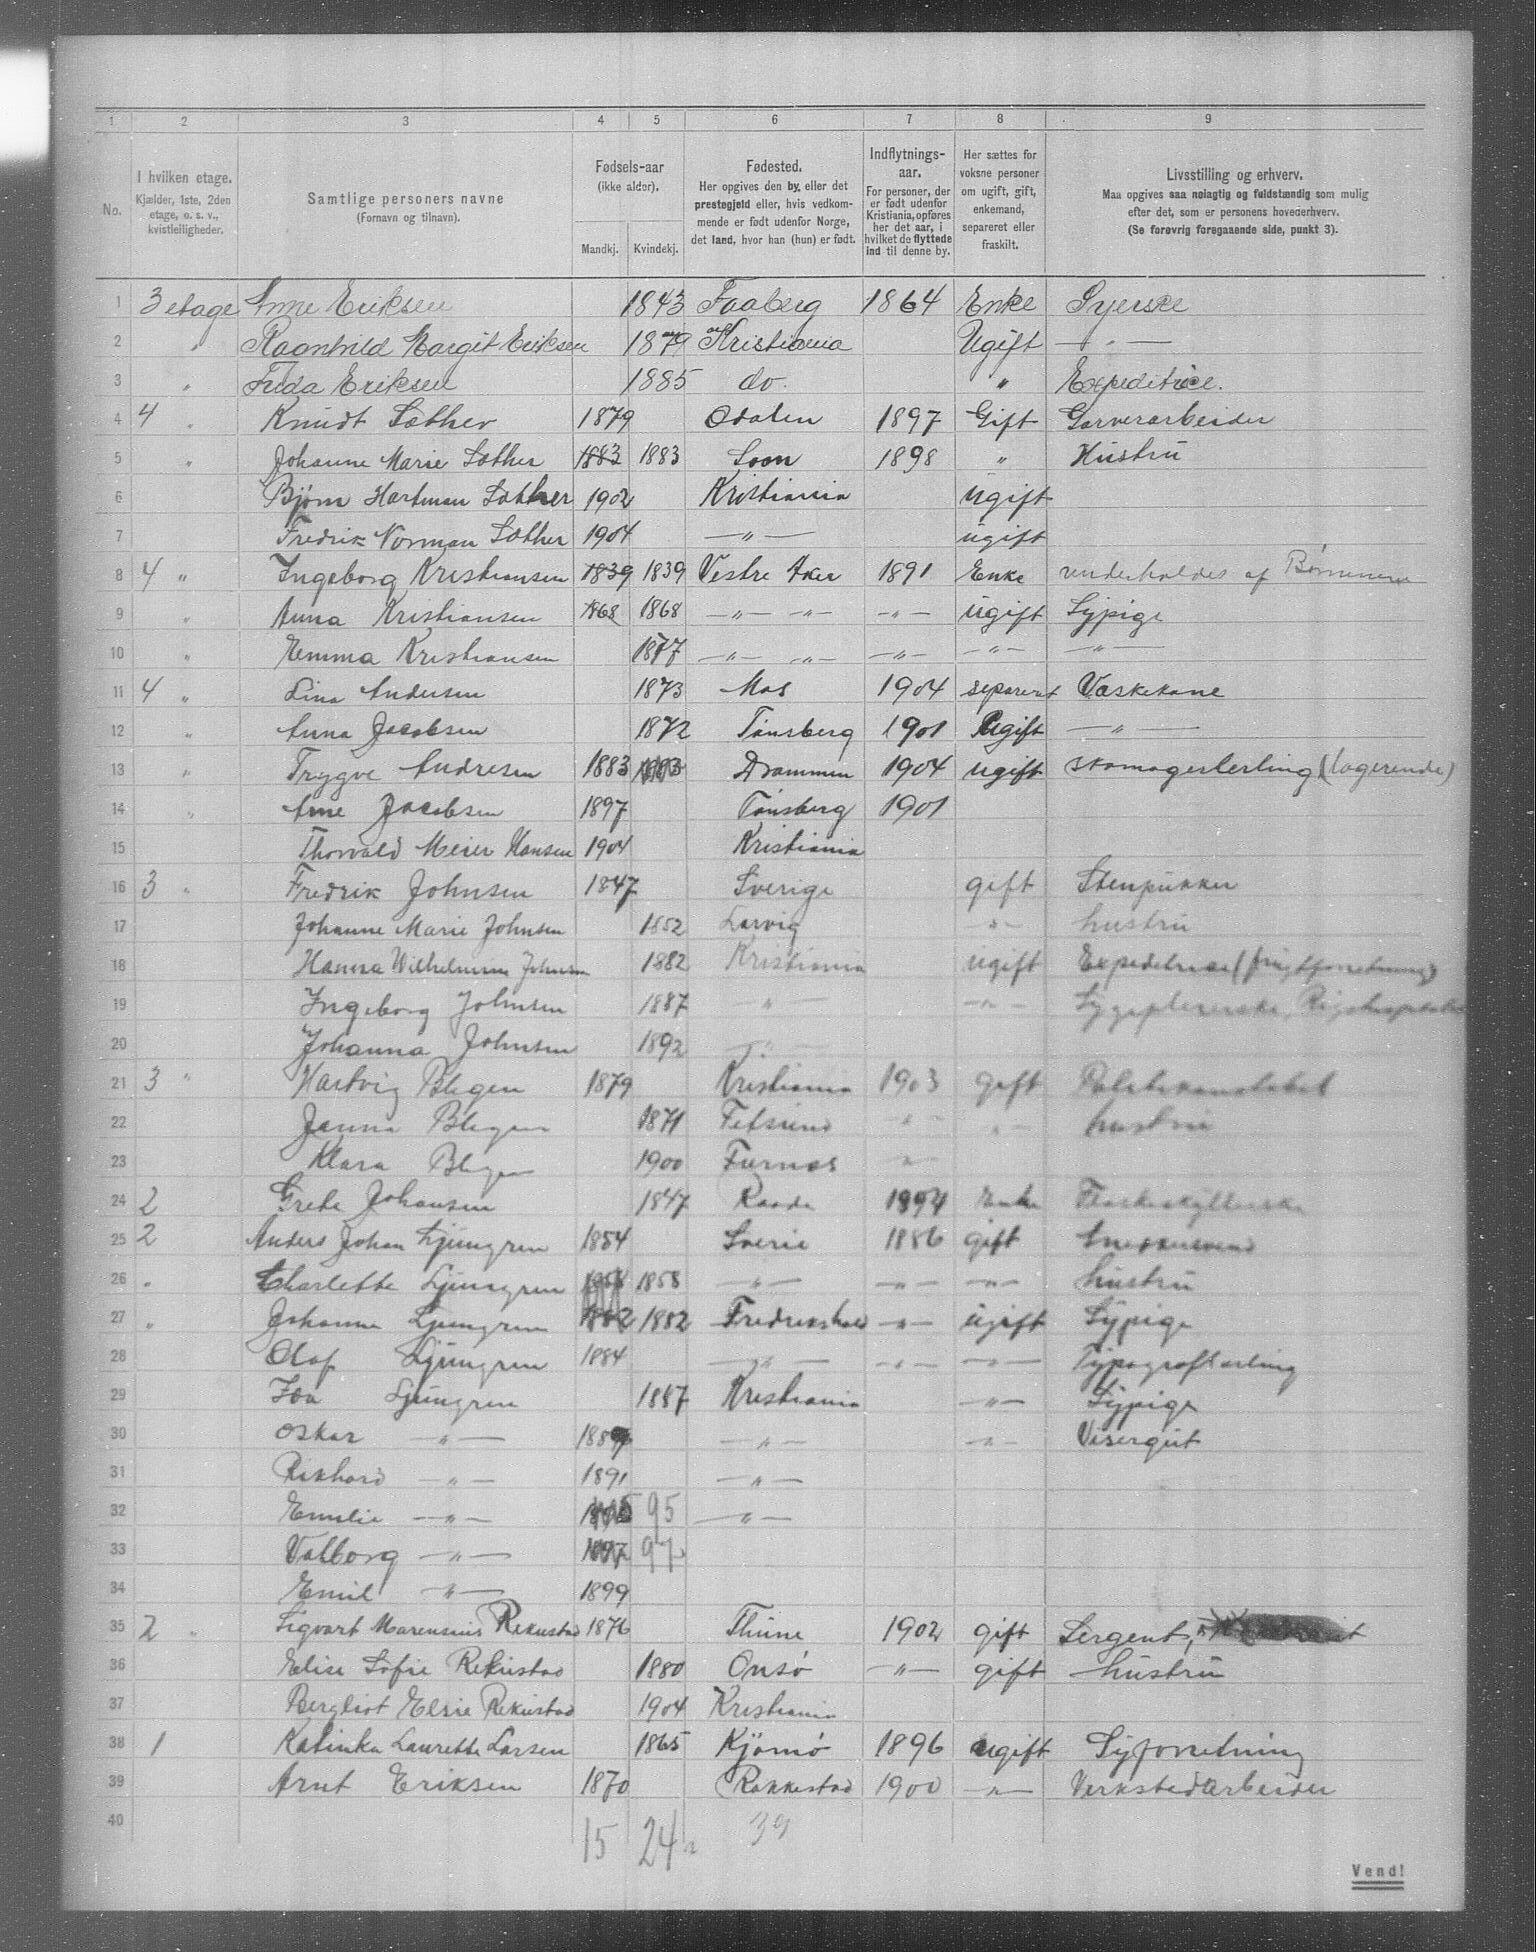 1 2 3 4 5 6 7 8 9
No.
I hvilken etage.
Kjælder, 1ste, 2den
etage, o. s. v.,
kvistleiligheder.
Samtlige personers navne
(Fornavn og tilnavn).
Fødsels-aar
(ikke alder).
Mandkj. Kvindekj.
Fødested.
Her opgives den by, eller det
prestegjeld eller, hvis vedkom-
mende er født udenfor Norge,
det land, hvor han (hun) er født.
Indflytnings-
aar.
For personer, der
er født udenfor
Kristiania, opføres
her det aar, i
hvilket de flyttede
ind til denne by.
Her sættes for
voksne personer
om ugift, gift,
enkemand,
separeret eller
fraskilt.
Livsstilling og erhverv.
Maa opgives saa nøiagtig og fuldstændig som mulig
efter det, som er personens hovederhverv.
(Se forøvrig foregaaende side, punkt 3).
1 3 etage Anne Eriksen 1843 Faaberg 1864 Enke Syerske
2 " Ragnhild Margit Eriksen 1879 Kristiania Ugift — " —
3 " Frida Eriksen 1885 do. " Expeditrice.
4 4 " Knudt Sæther 1879 Odalen 1897 Gift Garverarbeider
5 " Johanne Marie Sæther 1883 1883 Soon 1898 " Hustru
6 Bjørn Hartman Sæther 1902 Kristiania ugift
7 Fredrik Norman Sæther 1904 — " — ugift
8 4 " Ingeborg Kristiansen 1839 1839 Vestre Aker 1891 Enke underholdes af Børnene
9 " Anna Kristiansen 1868 1868 — " — " — — " — ugift Sypige
10 " Emma Kristiansen 1877 — " — " — — " — — " — — " —
11 4 " Lina Andersen 1873 Mos 1904 separert Vaskekone
12 " Anna Jacobsen 1872 Tønsberg 1901 Ugift — " —
13 " Trygve Andresen 1883 Drammen 1904 ugift Skomagerlerling (logerende)
14 " Arne Jacobsen 1897 Tønsberg 1901
15 Thorvald Meier Hansen 1904 Kristiania
16 3 " Fredrik Johnsen 1847 Sverige gift Stenpukker
17 Johanne Marie Johnsen 1852 Larvig — " — hustru
18 Hanna Wilhelmine Johnsen 1882 Kristiania ugift Expeditrice (frugtforretning)
19 Ingeborg Johnsen 1887 — " — — " — Sygepleierske, Rigshospitalet
20 Johanna Johnsen 1892 — " —
21 3 " Hartvig Blegen 1879 Kristiania 1903 gift Politikonstabel
22 Janna Blegen 1871 Fetsund " " hustru
23 Klara Blegen 1900 Furnes "
24 2 Grete Johansen 1847 Raade 1894 Enke Flaskeskyllerske
25 2 Anders Johan Ljungren 1854 Sverie 1886 gift Snekkersvend
26 " Charlette Ljungren 1858 — " — — " — — " — hustru
27 " Johanne Ljungren 1882 1882 Fredrikshald — " — ugift Sypige
28 Olaf Ljungren 1884 — " — — " — — " — Typograflerling
29 Ida Ljungren 1887 Kristiania — " — Sypige
30 Oskar — " — 1889 — " — — " — Visergut
31 Rikhard — " — 1891 — " —
32 Emilie — " — 95 — " —
33 Valborg — " — 1897 97
34 Emil — " — 1899
35 2 " Sigvart Marensius Rekustad 1876 Thune 1902 gift Sergent,
36 Elise Sofie Rekustad 1880 Onsø — " — gift hustru
37 Bergliot Elsie Rekustad 1904 Kristiania
38 1 Katinka Laurette Larsen 1865 Kjømø 1896 ugift Syforretning
39 Arnt Eriksen 1870 Rakkestad 1900 — " — Verkstedarbeider
40
15 24 39
Vend!